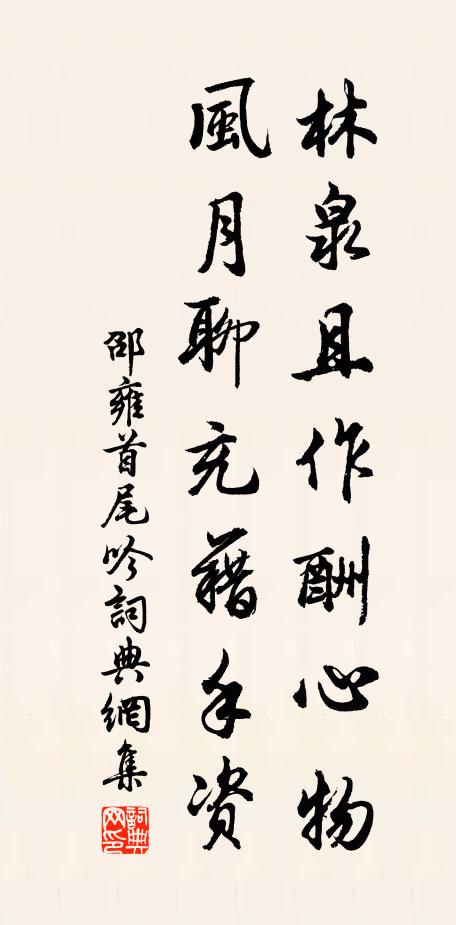 林泉且作酬心物
風月聊充藉手資
邵雍首尾吟詞典網集
詞典網印